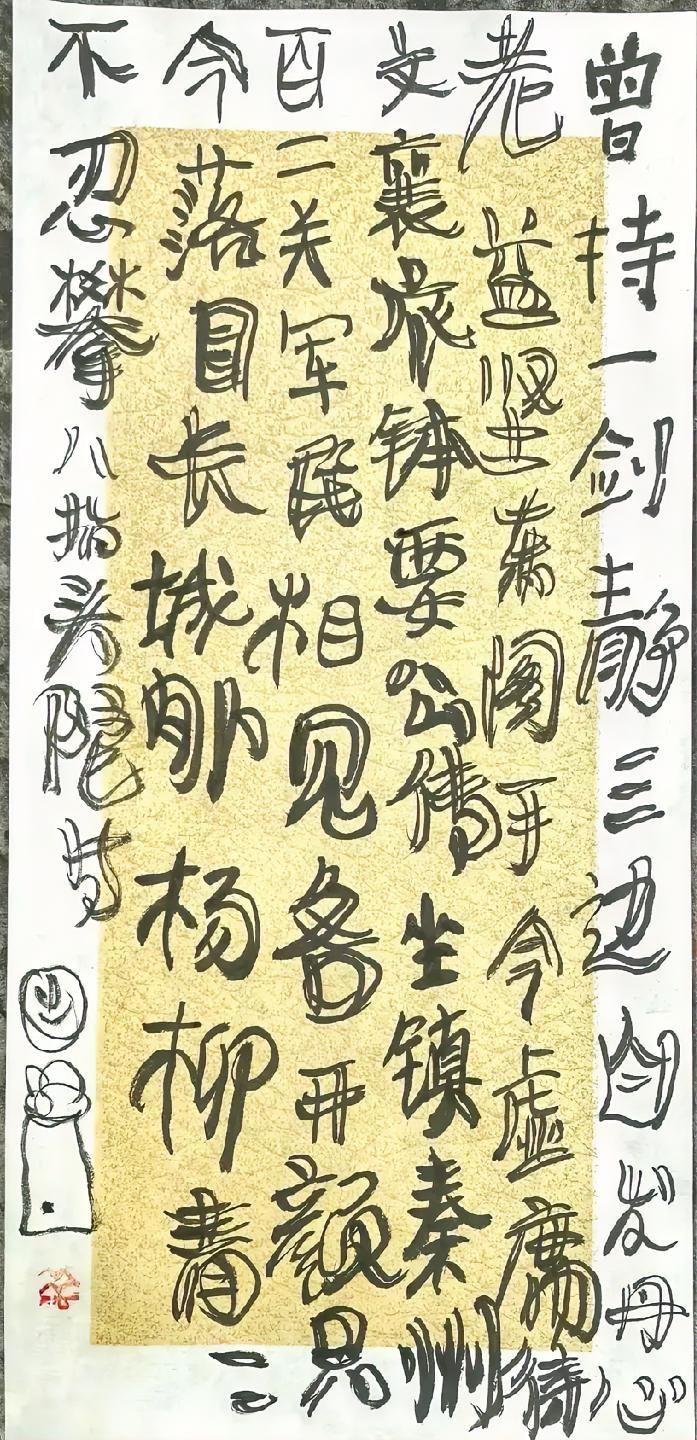 曾持一剑静三边白发丹心
老益坚阁于今虚席待
文襄衣钵要公傳坐镇秦州
百二关军民相见各开颜只
今落日长城外杨柳青青
不忍攀八指头陀诗